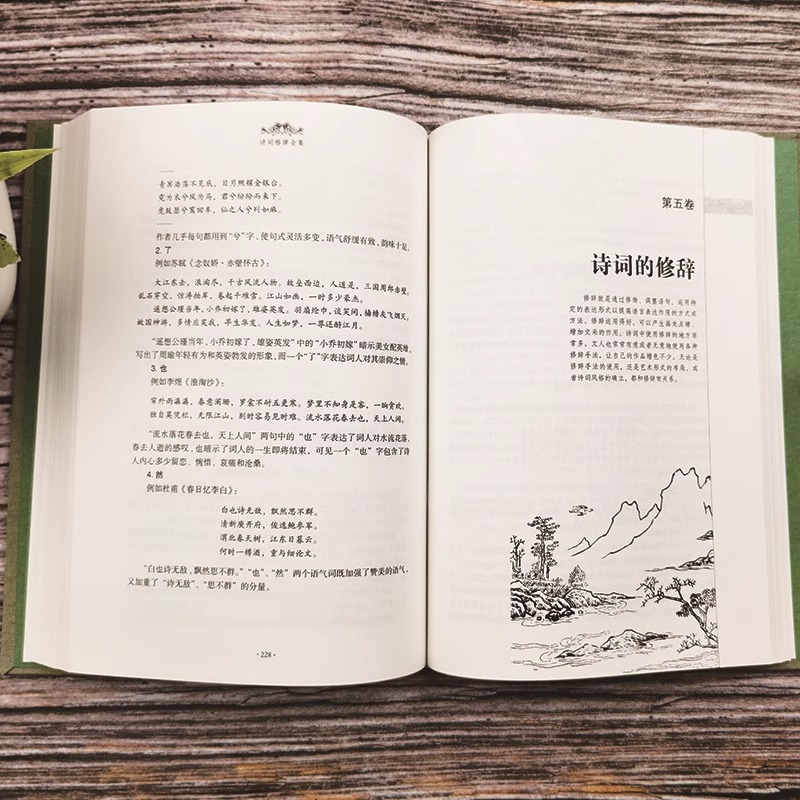 诗词格律全集
……
青冥浩荡不见底，日月照耀金银台。
霓为衣兮风为马，云之君兮纷纷而来下。
虎鼓瑟兮鸾回车，仙之人兮列如麻。
……
作者几乎每句都用到“兮”字，使句式灵活多变，语气舒缓有致，韵味十足。
2. 了
例如苏轼《念奴娇·赤壁怀古》：
大江东去，浪淘尽，千古风流人物。故垒西边，人道是，三国周郎赤壁。
乱石穿空，惊涛拍岸，卷起千堆雪。江山如画，一时多少豪杰。
遥想公瑾当年，小乔初嫁了，雄姿英发。羽扇纶巾，谈笑间，樯橹灰飞烟灭。
故国神游，多情应笑我，早生华发。人生如梦，一尊还酹江月。
“遥想公瑾当年，小乔初嫁了，雄姿英发”中的“小乔初嫁”暗示美女配英雄，
写出了周瑜年轻有为和英姿勃发的形象，而一个“了”字表达词人对其崇仰之情。
3. 也
例如李煜《浪淘沙》：
帘外雨潺潺，春意阑珊，罗衾不耐五更寒。梦里不知身是客，一晌贪欢。
独自莫凭栏，无限江山，别时容易见时难。流水落花春去也，天上人间。
“流水落花春去也，天上人间”两句中的“也”字表达了词人对水流花落、
春去人逝的感叹，也暗示了词人的一生即将结束，可见一个“也”字包含了诗
人内心多少留恋、惋惜、哀痛和沧桑。
4. 然
例如杜甫《春日忆李白》：
白也诗无敌，飘然思不群。
清新庾开府，俊逸鲍参军。
渭北春天树，江东日暮云。
何时一樽酒，重与细论文。
“白也诗无敌，飘然思不群。”“也”、“然”两个语气词既加强了赞美的语气，
又加重了“诗无敌”、“思不群”的分量。
·228·
第五卷
诗词的修辞
修辞就是通过修饰、调整语句，运用特
定的表达形式以提高语言表达作用的方式或
方法。修辞运用得好，可以产生画龙点睛、
增加文采的作用。诗词中使用修辞的地方非
常多，文人也常常有意或者无意地使用各种
修辞手法，让自己的作品增色不少。无论是
修辞手法的使用，还是艺术形式的布局，或
者诗词风格的确立，都和修辞有关系。